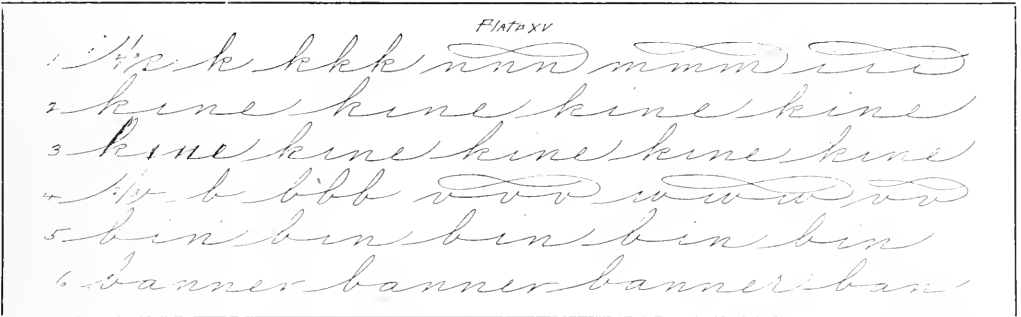 Plate XV
1 k k k k k n n n m m m i i i
2 kine kine kine kine
3 kine kine kine kine kine
4 b b b b v v v w w w v v
5 bin bin bin bin bin
6 banner banner banner ban